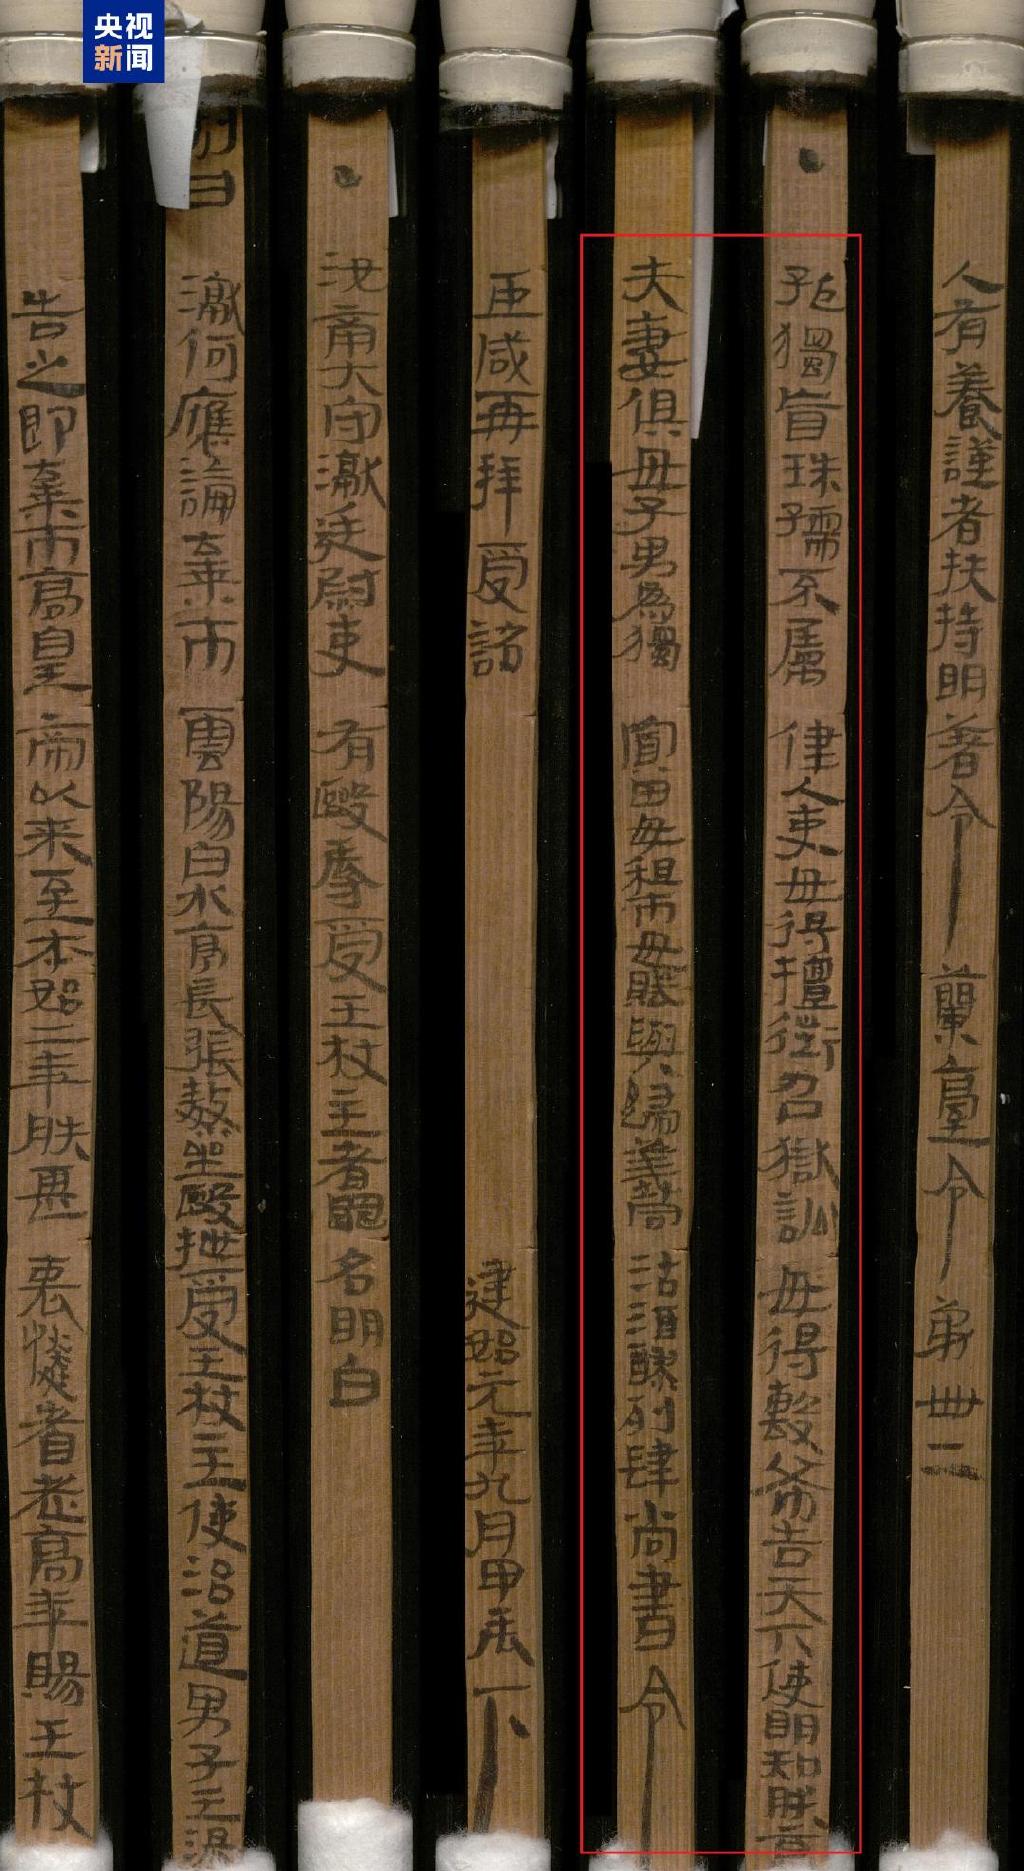 央视
新闻
人有養謹者扶持明著令 蘭臺令 第卌二
孤獨盲珠孺不屬 律人吏毋得擅徵召獄訟 毋得毆 布告天下使明知朕意
夫妻俱毋子男為獨 寡田毋租市毋賦與歸義同 沽酒醪列肆尚書令
臣咸再拜受詔 建始元年九月甲辰下
汝南大守讞廷尉吏 有毆辱受王杖主者罪 名明白
制曰 讞何應論棄市 雲陽白水亭長張熬坐毆抴受王杖主使治道男子王湯
告之即棄市高皇 帝以來至本始二年朕甚 哀憐耆老高年賜王杖